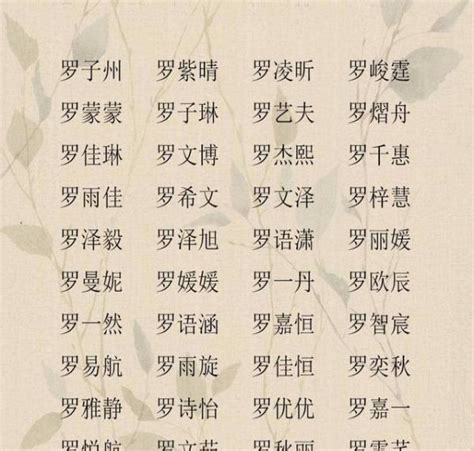 罗子州 罗紫晴 罗凌昕 罗峻霆
罗蒙蒙 罗子琳 罗艺夫 罗熠舟
罗佳琳 罗文博 罗杰熙 罗千惠
罗雨佳 罗希文 罗文泽 罗梓慧
罗泽毅 罗泽旭 罗语潇 罗丽媛
罗曼妮 罗媛媛 罗一丹 罗欧辰
罗一然 罗语涵 罗嘉恒 罗智宸
罗易航 罗雨旋 罗佳恒 罗奕秋
罗雅静 罗诗怡 罗优优 罗嘉一
罗悦航 罗文茹 罗秋丽 罗雪芊